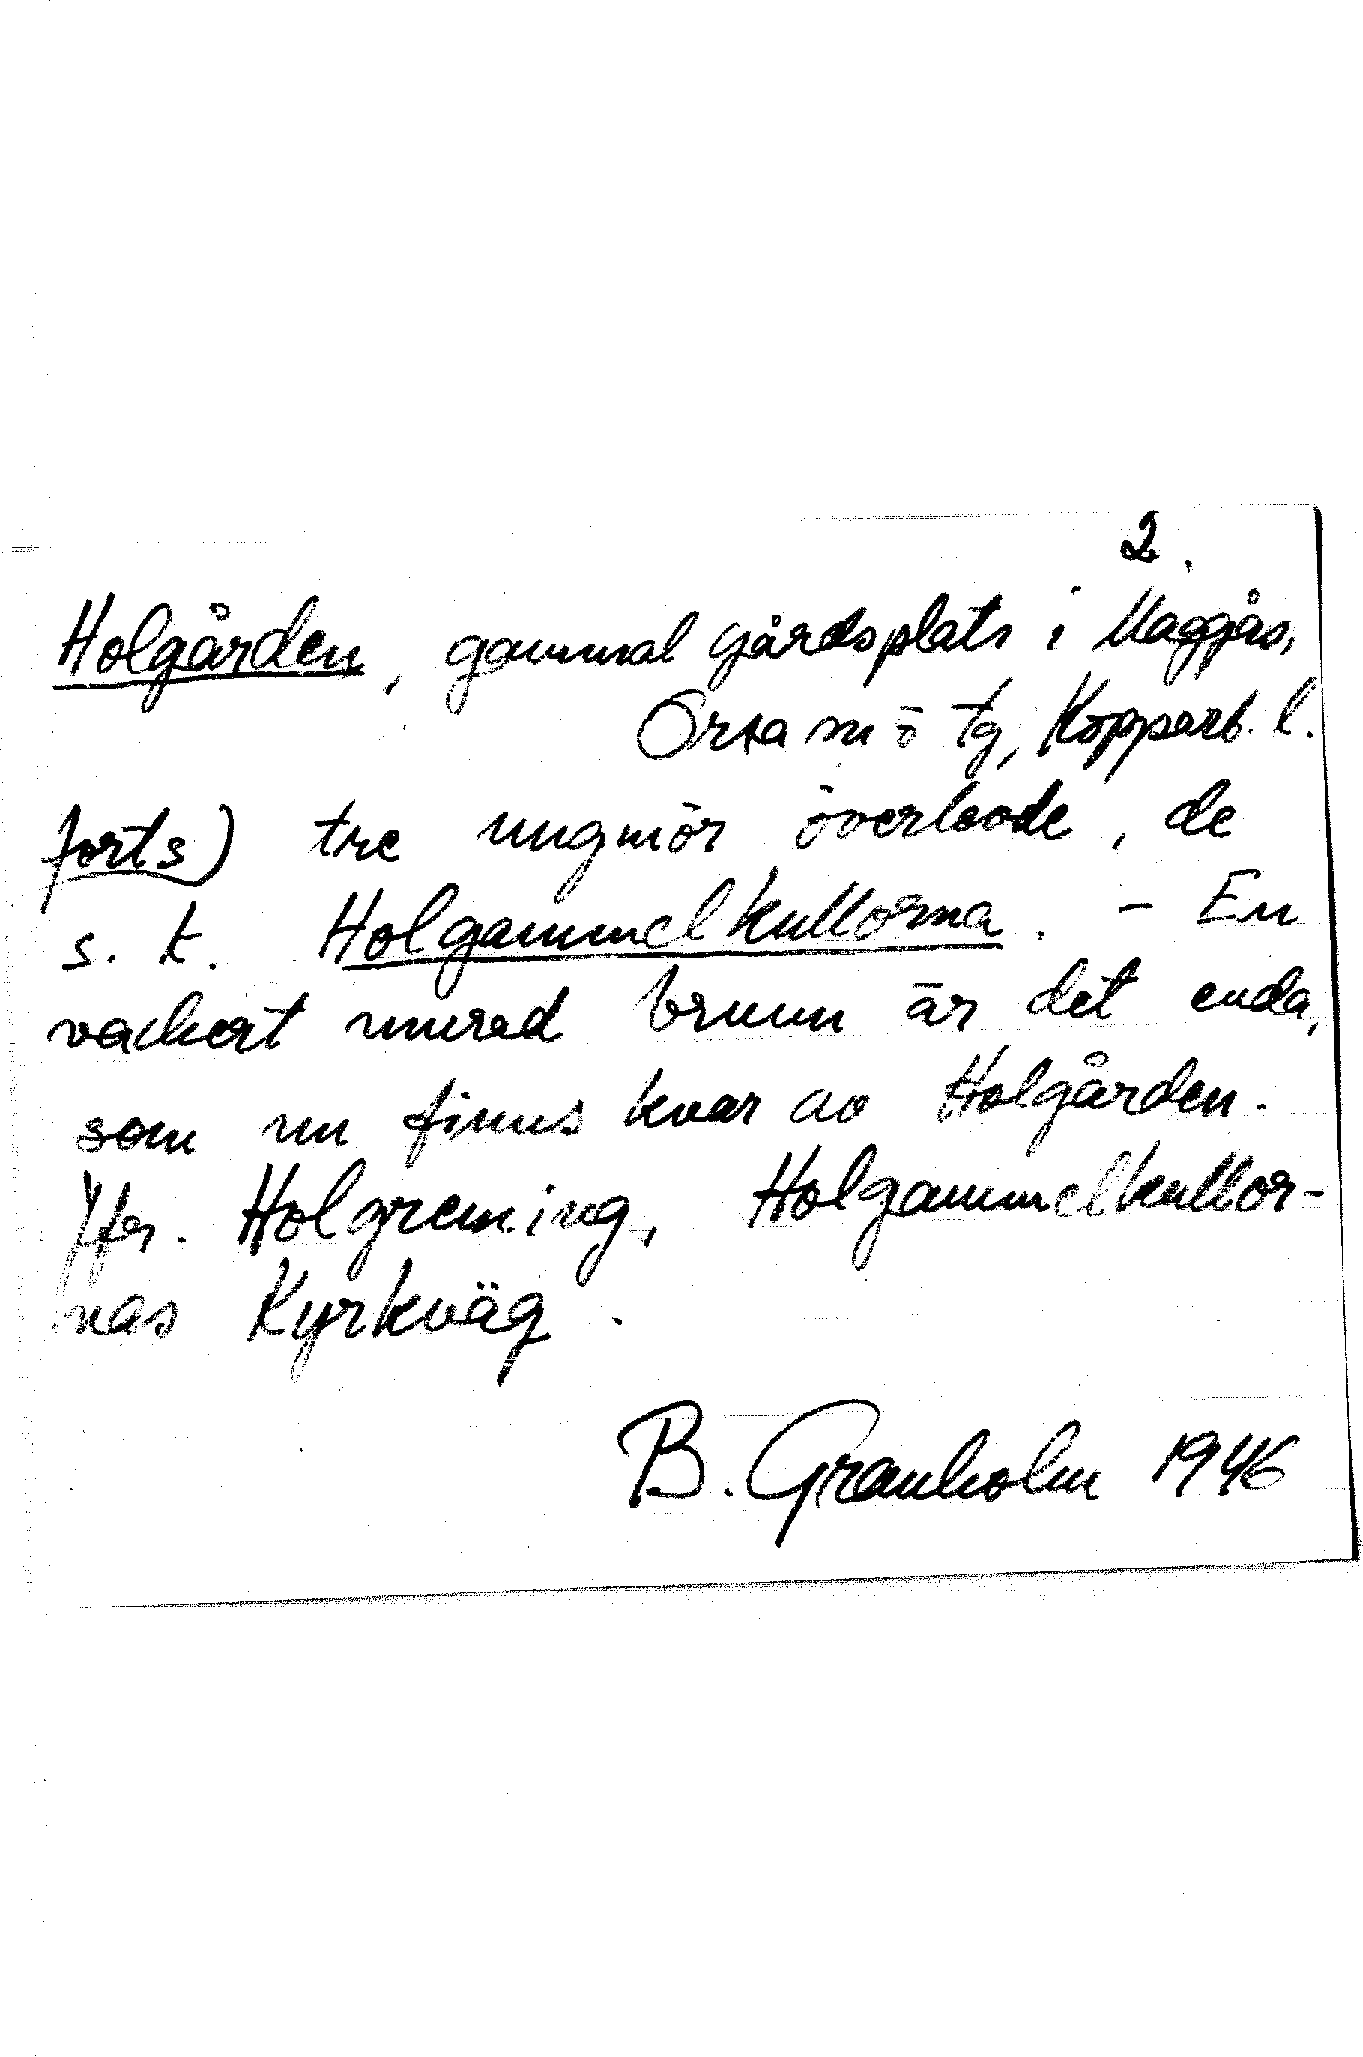 2.
Holgården, gammal gårdsplats i Maggås,
Orsa sn ö tg, Kopparb. l.
forts) tre ungmör överlevde, de
s. k. Holgammelkullorna. - En
vackert murad brunn är det enda,
som nu finns kvar av Holgården.
Jfr. Holgreming, Holgammelkullor-
nas Kyrkväg.
B. Granholm 1946